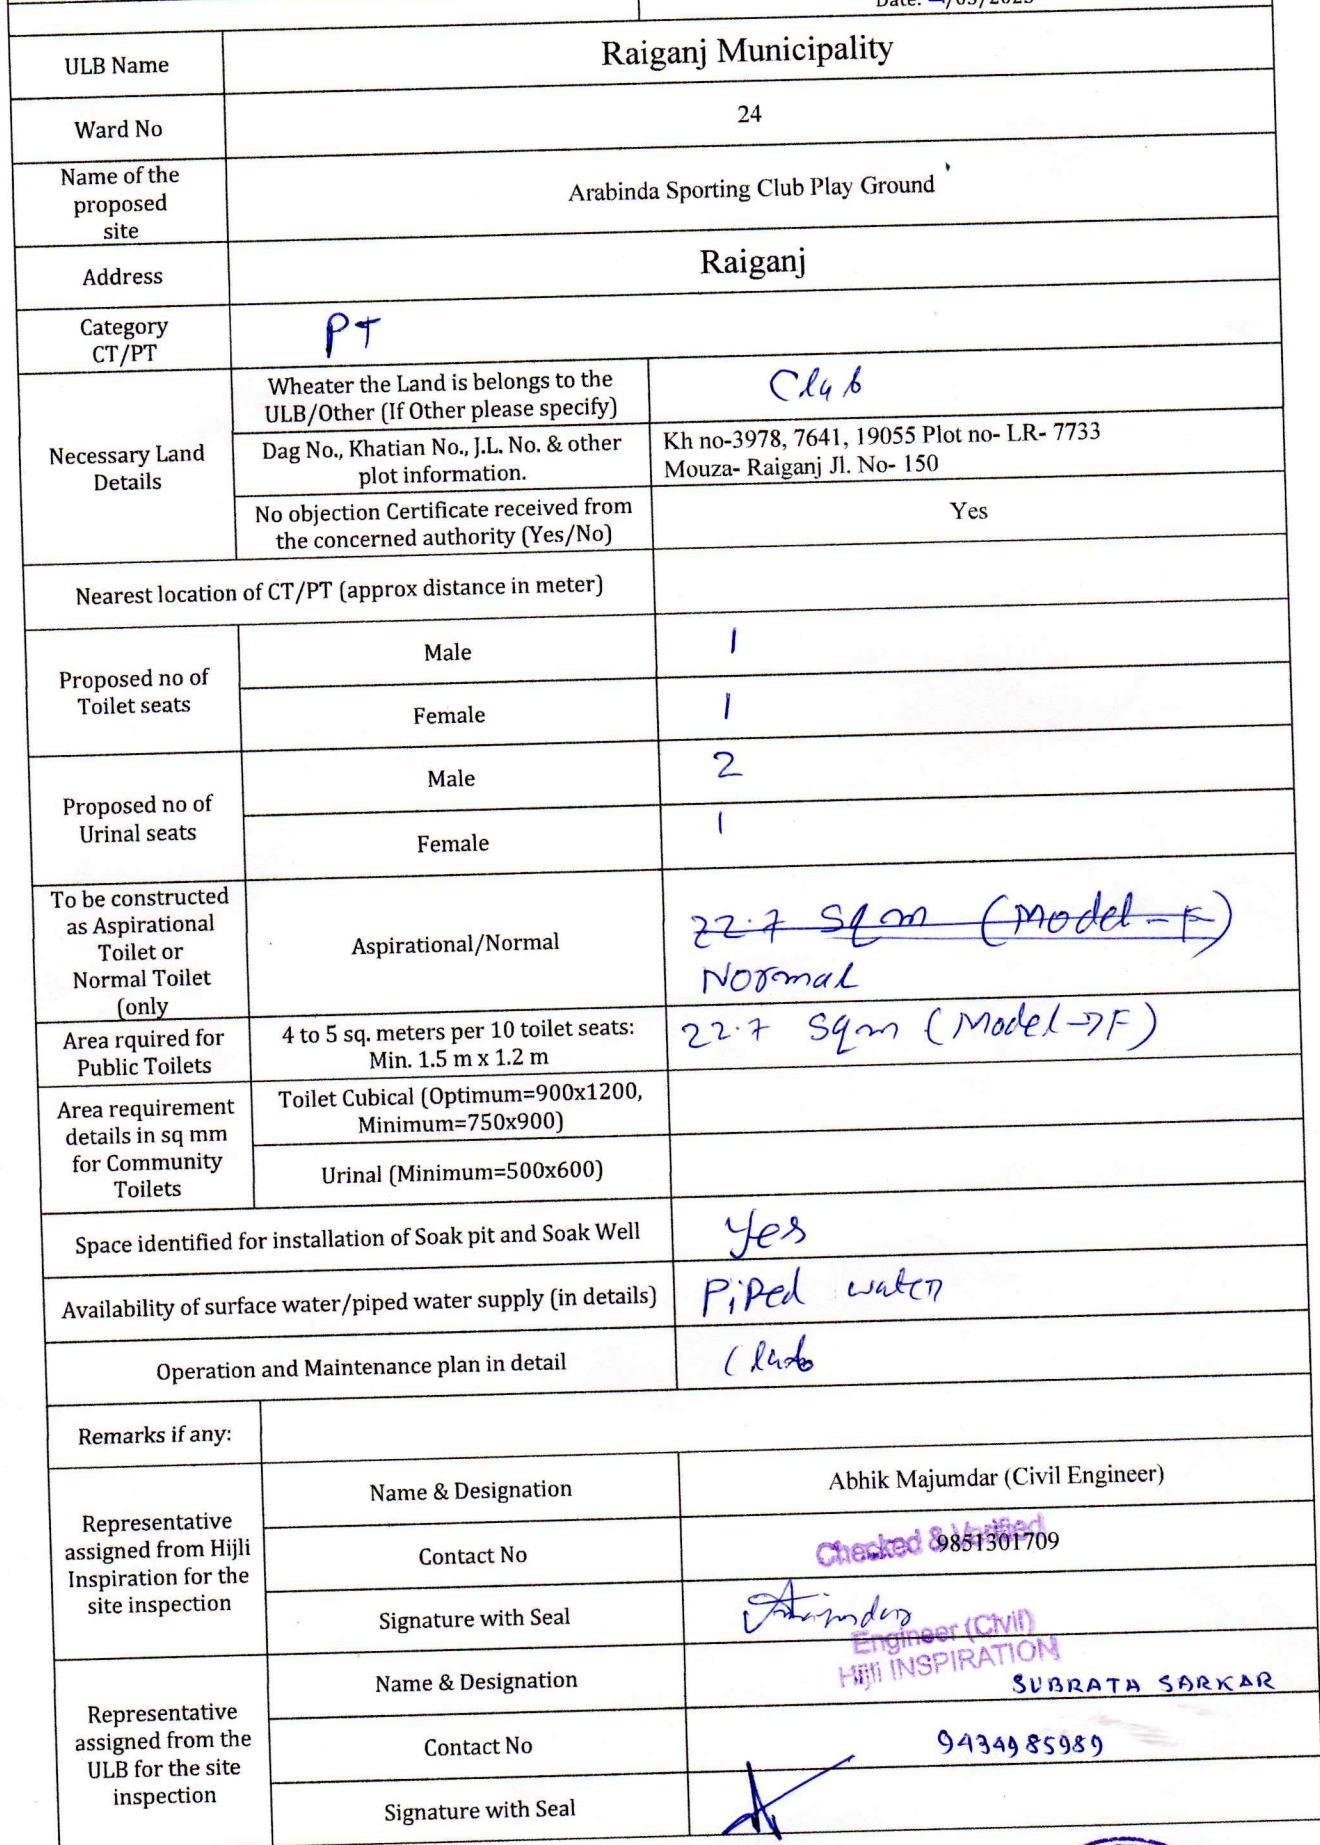 Date: /03/2023
ULB Name
Raiganj Municipality
Ward No
24
Name of the
proposed
site
Arabinda Sporting Club Play Ground
Address
Raiganj
Category
CT/PT
PT
Necessary Land
Details
Wheater the Land is belongs to the
ULB/Other (If Other please specify)
Club
Dag No., Khatian No., J.L. No. & other
plot information.
Kh no-3978, 7641, 19055 Plot no- LR- 7733
Mouza- Raiganj Jl. No- 150
No objection Certificate received from
the concerned authority (Yes/No)
Yes
Nearest location of CT/PT (approx distance in meter)
Proposed no of
Toilet seats
Male
1
Female
1
Proposed no of
Urinal seats
Male
2
Female
1
To be constructed
as Aspirational
Toilet or
Normal Toilet
(only
Aspirational/Normal
22.7 Sqm (Model-F)
Normal
Area rquired for
Public Toilets
4 to 5 sq. meters per 10 toilet seats:
Min. 1.5 m x 1.2 m
22.7 Sqm (Model→F)
Area requirement
details in sq mm
for Community
Toilets
Toilet Cubical (Optimum=900x1200,
Minimum=750x900)
Urinal (Minimum=500x600)
Space identified for installation of Soak pit and Soak Well
Yes
Availability of surface water/piped water supply (in details)
Piped water
Operation and Maintenance plan in detail
Club
Remarks if any:
Representative
assigned from Hijli
Inspiration for the
site inspection
Name & Designation
Abhik Majumdar (Civil Engineer)
Contact No
Checked & Verified
9851301709
Signature with Seal
Engineer (Civil)
Hijli INSPIRATION
Representative
assigned from the
ULB for the site
inspection
Name & Designation
SUBRATA SARKAR
Contact No
9434985989
Signature with Seal